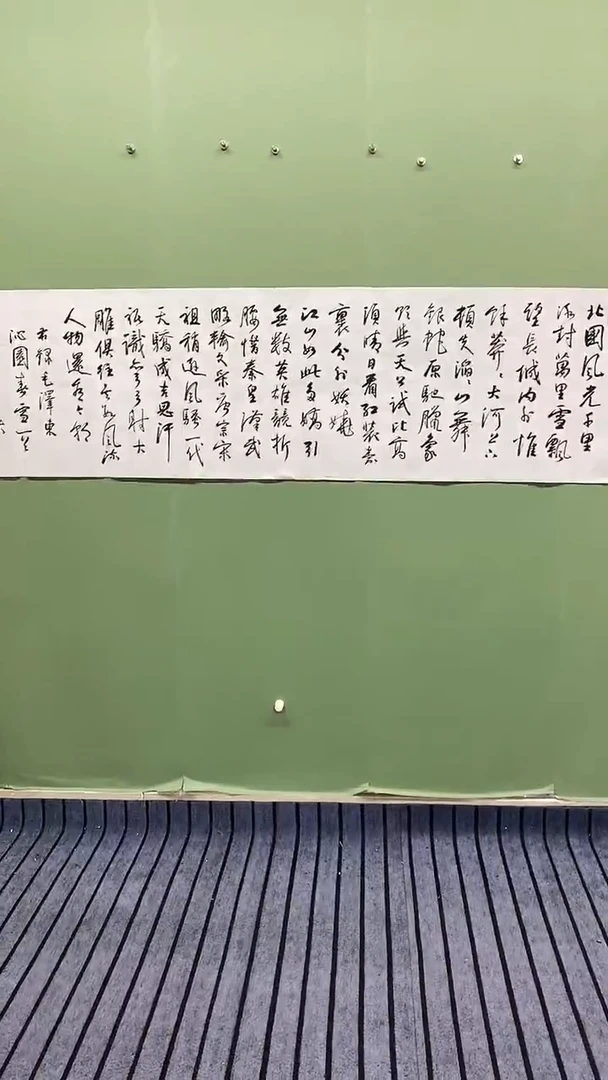 北國風光千里
冰封萬里雪飄
望長城内外惟
餘莽〻大河上下
頓失滔〻山舞
銀蛇原馳臘象
欲與天公試比高
須晴日看紅裝素
裹分外妖嬈
江山如此多嬌引
無數英雄競折
腰惜秦皇漢武
略輸文采唐宗宋
祖稍遜風騷一代
天驕成吉思汗
祗識彎弓射大
雕俱往矣數風流
人物還看今朝
右錄毛澤東
沁園春雪一首